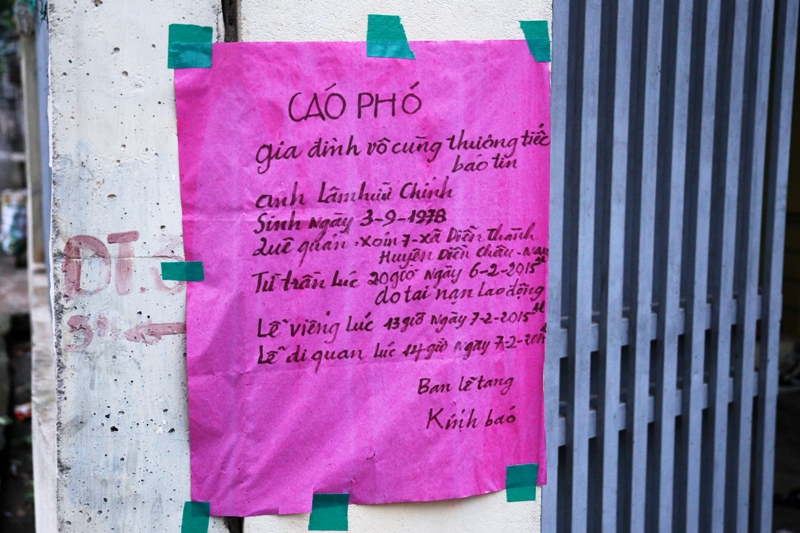 CÁO PHÓ
gia đình vô cùng thương tiếc
báo tin
anh Lâm hữu Chinh
Sinh ngày 3-9-1978
Quê quán: xóm 7-xã Diễn Thành
Huyện Diễn Châu-
Từ trần lúc 20giờ ngày 6-2-2015
do tai nạn Lao động
Lễ viếng lúc 13giờ ngày 7-2-2015
Lễ di quan lúc 14giờ ngày 7-2-
Ban lễ tang
Kính báo
ĐT: